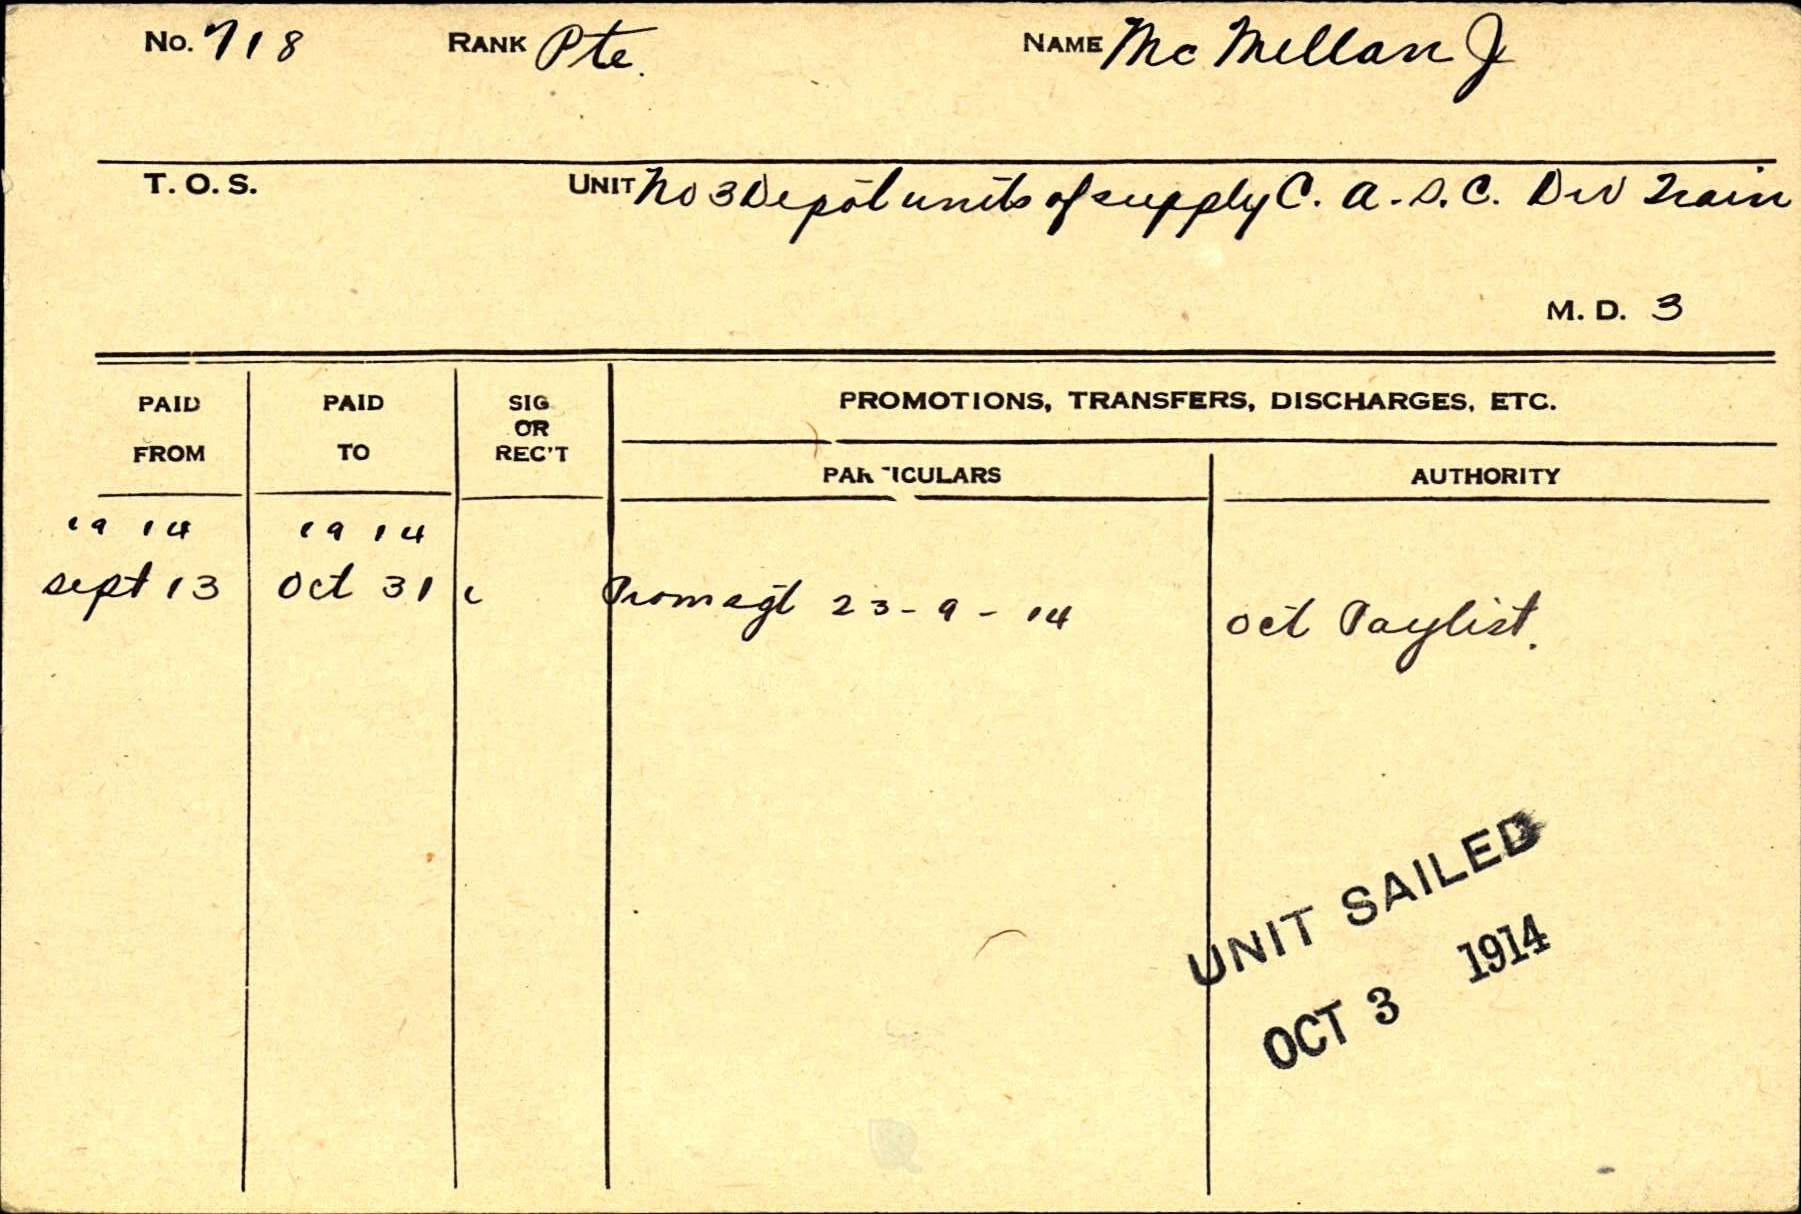 No. 718 RANK Pte. NAME Mc Millan J
T. O. S. UNIT No 3 Depot units of supply C. A. S. C. Div Train
M. D. 3
PAID FROM PAID TO SIG OR REC'T PROMOTIONS, TRANSFERS, DISCHARGES, ETC.
PARTICULARS AUTHORITY
1914 1914
Sept 13 Oct 31 c Prom Sgt 23-9-14 Oct Paylist.
UNIT SAILED
OCT 3 1914